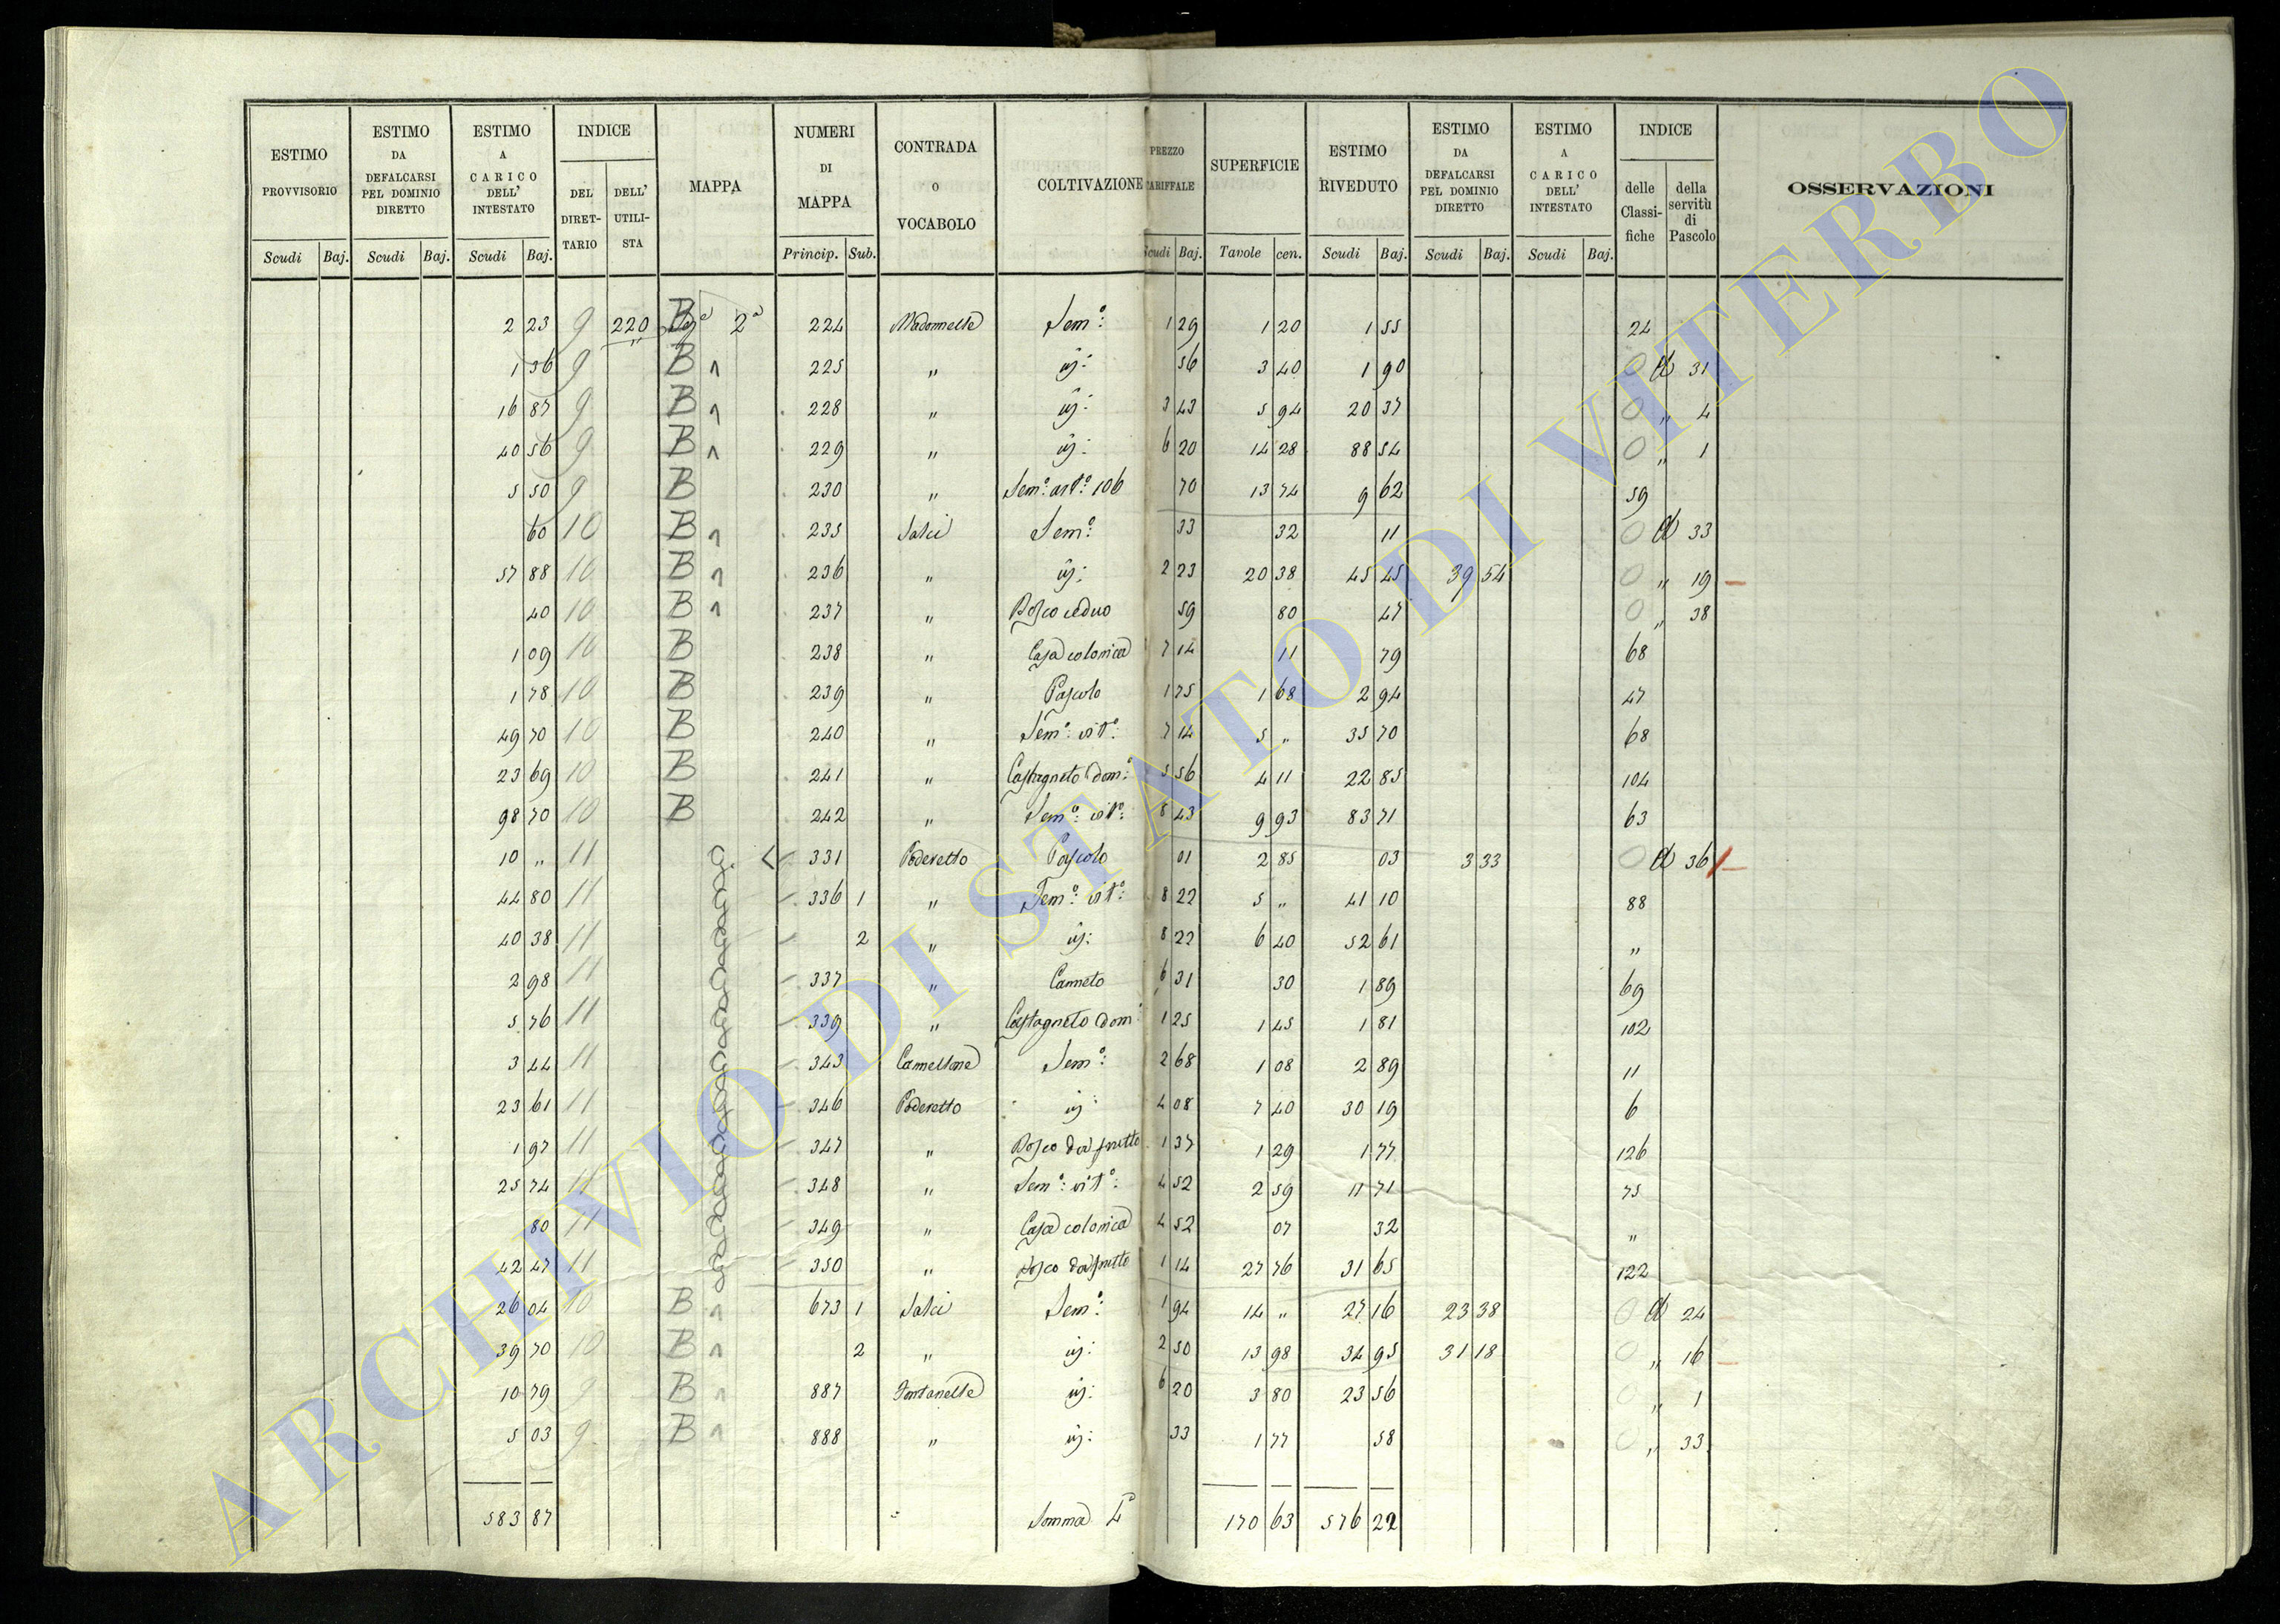 ESTIMO PROVVISORIO
ESTIMO DA DEFALCARSI PEL DOMINIO DIRETTO
ESTIMO A CARICO DELL' INTESTATO
INDICE
DEL DIRET- TARIO
DELL' UTILI- STA
MAPPA
NUMERI DI MAPPA
CONTRADA O VOCABOLO
COLTIVAZIONE
PREZZO TARIFFALE
SUPERFICIE
ESTIMO RIVEDUTO
ESTIMO DA DEFALCARSI PEL DOMINIO DIRETTO
ESTIMO A CARICO DELL' INTESTATO
INDICE
delle Classi- fiche
della servitù di Pascolo
OSSERVAZIONI
Scudi Baj. Scudi Baj. Scudi Baj. Princip. Sub. Scudi Baj. Tavole cen. Scudi Baj. Scudi Baj. Scudi Baj.
2 23 9 220 B 2ª 224 Madonnella Semº: 1 29 1 20 1 55 24
1 36 9 B 225 " id: 56 3 40 1 90 0 31
16 87 9 B 228 " id: 3 43 5 94 20 37 0 " 4
40 56 9 B 229 " id: 6 20 14 28 88 54 0 " 1
5 50 9 B 230 " Semº: arbº: 106 70 13 74 9 62 59
60 10 B 235 Salci Semº: 33 32 11 0 33
57 88 10 B 236 " id: 2 23 20 38 45 45 39 54 0 " 19
40 10 B 237 " Bosco ceduo 59 80 47 0 " 38
1 09 10 B 238 " Casa colonica 7 14 11 79 68
1 78 10 B 239 " Pascolo 1 75 1 68 2 94 47
49 70 10 B 240 " Semº: vitº: 7 14 5 " 35 70 68
23 69 10 B 241 " Castagneto domº: 5 56 4 11 22 85 104
98 70 10 B 242 " Semº: vitº: 8 43 9 93 83 71 63
10 " 11 331 Poderetto Pascolo 01 2 85 03 3 33 0 36
44 80 11 336 1 " Semº: vitº: 8 22 5 " 41 10 88
40 38 11 2 " id: 8 22 6 40 52 61 "
2 98 11 337 " Canneto 6 31 30 1 89 69
5 76 11 339 " Castagneto dom: 1 25 1 45 1 81 102
3 44 11 343 Camellone Semº: 2 68 1 08 2 89 11
23 61 11 346 Poderetto id: 4 08 7 40 30 19 6
1 97 11 347 " Bosco da frutto 1 37 1 29 1 77 126
25 74 11 348 " Semº: vitº: 4 52 2 59 11 71 75
80 11 349 " Casa colonica 4 52 07 32 "
42 47 11 350 " Bosco da frutto 1 14 27 76 31 65 122
26 04 10 B 673 1 Salci Semº: 1 94 14 " 27 16 23 38 0 24
39 70 10 B 2 " id: 2 50 13 98 34 95 31 18 0 " 16
10 79 9 B 887 Fontanelle id: 6 20 3 80 23 56 0 " 1
5 03 9 B 888 " id: 33 1 77 58 0 " 33
583 87 Somma 170 63 576 22
ARCHIVIO DI STATO DI VITERBO